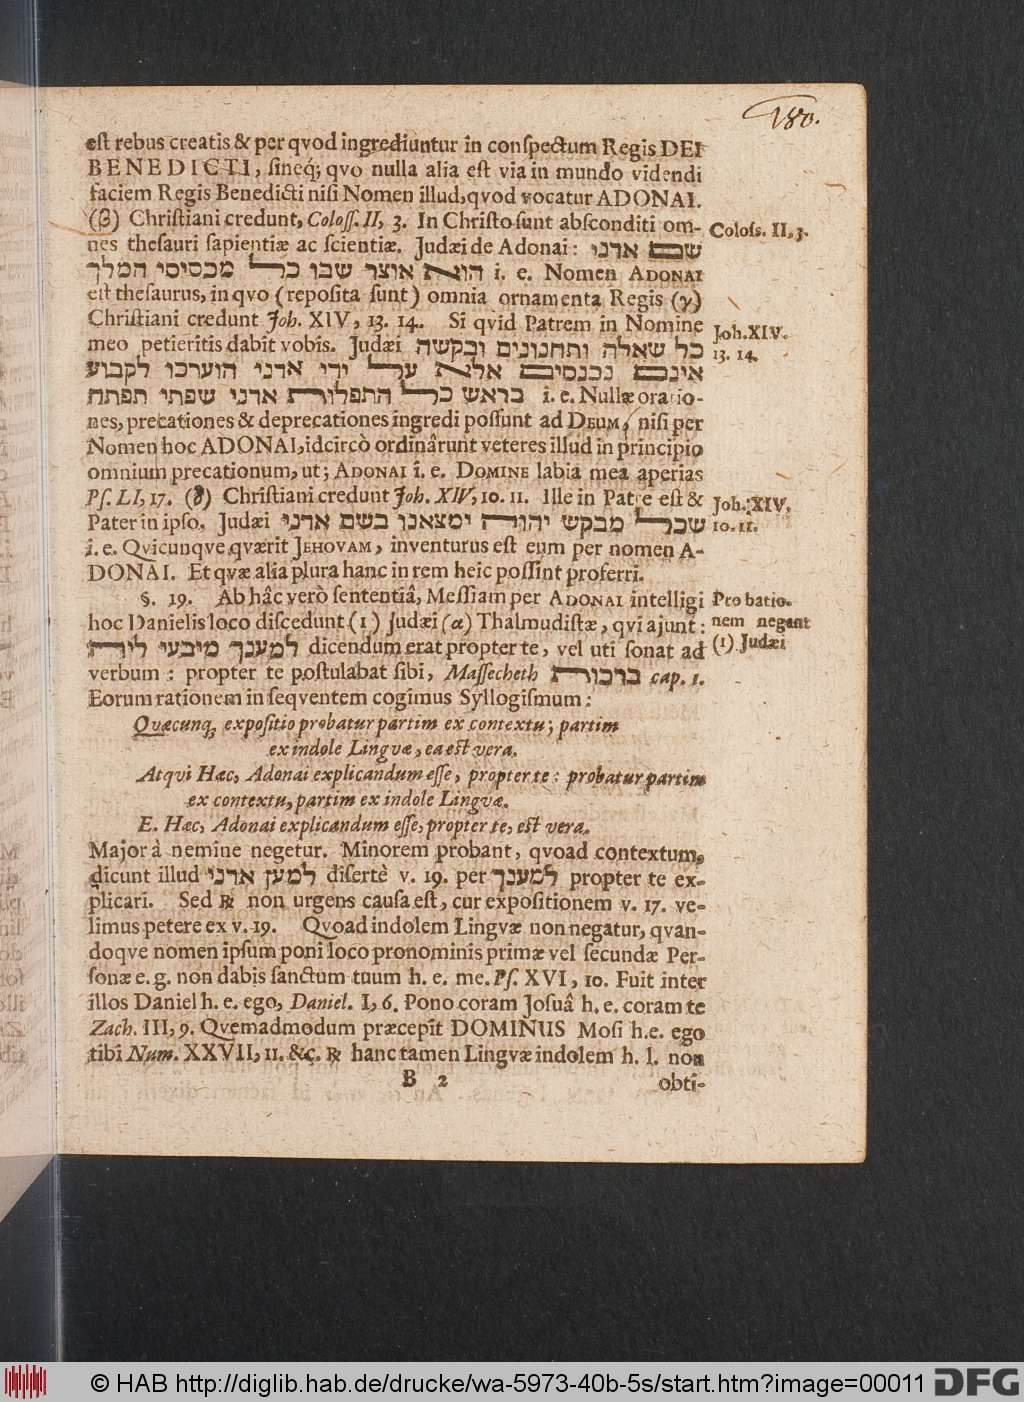 180.
est rebus creatis & per qvod ingrediuntur in conspectum Regis DEI
BENEDICTI, sineq́; qvo nulla alia est via in mundo videndi
faciem Regis Benedicti nisi Nomen illud, qvod vocatur ADONAI.
(β) Christiani credunt, Coloss. II, 3. In Christo sunt absconditi om-
Coloss. II, 3.
nes thesauri sapientiæ ac scientiæ. Judæi de Adonai: שם אדני
הוא אוצר שבו כל מכסיסי המלך i. e. Nomen ADONAI
est thesaurus, in qvo (reposita sunt) omnia ornamenta Regis (γ)
Christiani credunt Joh. XIV, 13. 14. Si qvid Patrem in Nomine
Joh. XIV.
meo petieritis dabit vobis. Judæi כל שאלה ותחנונים ובקשה
13. 14.
אינם נכנסים אלא על ידי אדני הוערכו לקבוע
בראש כל התפלות אדני שפתי תפתח i. e. Nullæ oratio-
nes, precationes & deprecationes ingredi possunt ad DEUM, nisi per
Nomen hoc ADONAI, idcircò ordinârunt veteres illud in principio
omnium precationum, ut; ADONAI i. e. DOMINE labia mea aperias
Ps. LI, 17. (δ) Christiani credunt Joh. XIV, 10. 11. Ille in Patre est &
Joh. XIV.
Pater in ipso. Judæi שכל מבקש יהוה ימצאנו בשם אדני
10. 11.
i. e. Qvicunqve qværit JEHOVAM, inventurus est eum per nomen A-
DONAI. Et qvæ alia plura hanc in rem heic possint proferri.
§. 19. Ab hâc verò sententiâ, Messiam per ADONAI intelligi
Probatio-
hoc Danielis loco discedunt (1) Judæi (α) Thalmudistæ, qvi ajunt:
nem negant
למענך מיבעי ליה dicendum erat propter te, vel uti sonat ad
(1) Judæi
verbum: propter te postulabat sibi, Massecheth ברכות cap. 1.
Eorum rationem in seqventem cogimus Syllogismum:
Qvæcunq; expositio probatur partim ex contextu; partim
ex indole Lingvæ, ea est vera.
Atqvi Hæc, Adonai explicandum esse, propter te: probatur partim
ex contextu, partim ex indole Lingvæ.
E. Hæc, Adonai explicandum esse, propter te, est vera.
Major à nemine negetur. Minorem probant, qvoad contextum,
dicunt illud למען אדני disertè v. 19. per למענך propter te ex-
plicari. Sed ℞ non urgens causa est, cur expositionem v. 17. ve-
limus petere ex v. 19. Qvoad indolem Lingvæ non negatur, qvan-
doqve nomen ipsum poni loco pronominis primæ vel secundæ Per-
sonæ e. g. non dabis sanctum tuum h. e. me. Ps. XVI, 10. Fuit inter
illos Daniel h. e. ego, Daniel. I, 6. Pono coram Josuâ h. e. coram te
Zach. III, 9. Qvemadmodum præcepit DOMINUS Mosi h. e. ego
tibi Num. XXVII, 11. &c. ℞ hanc tamen Lingvæ indolem h. l. non
B 2
obti-
© HAB http://diglib.hab.de/drucke/wa-5973-40b-5s/start.htm?image=00011
DFG